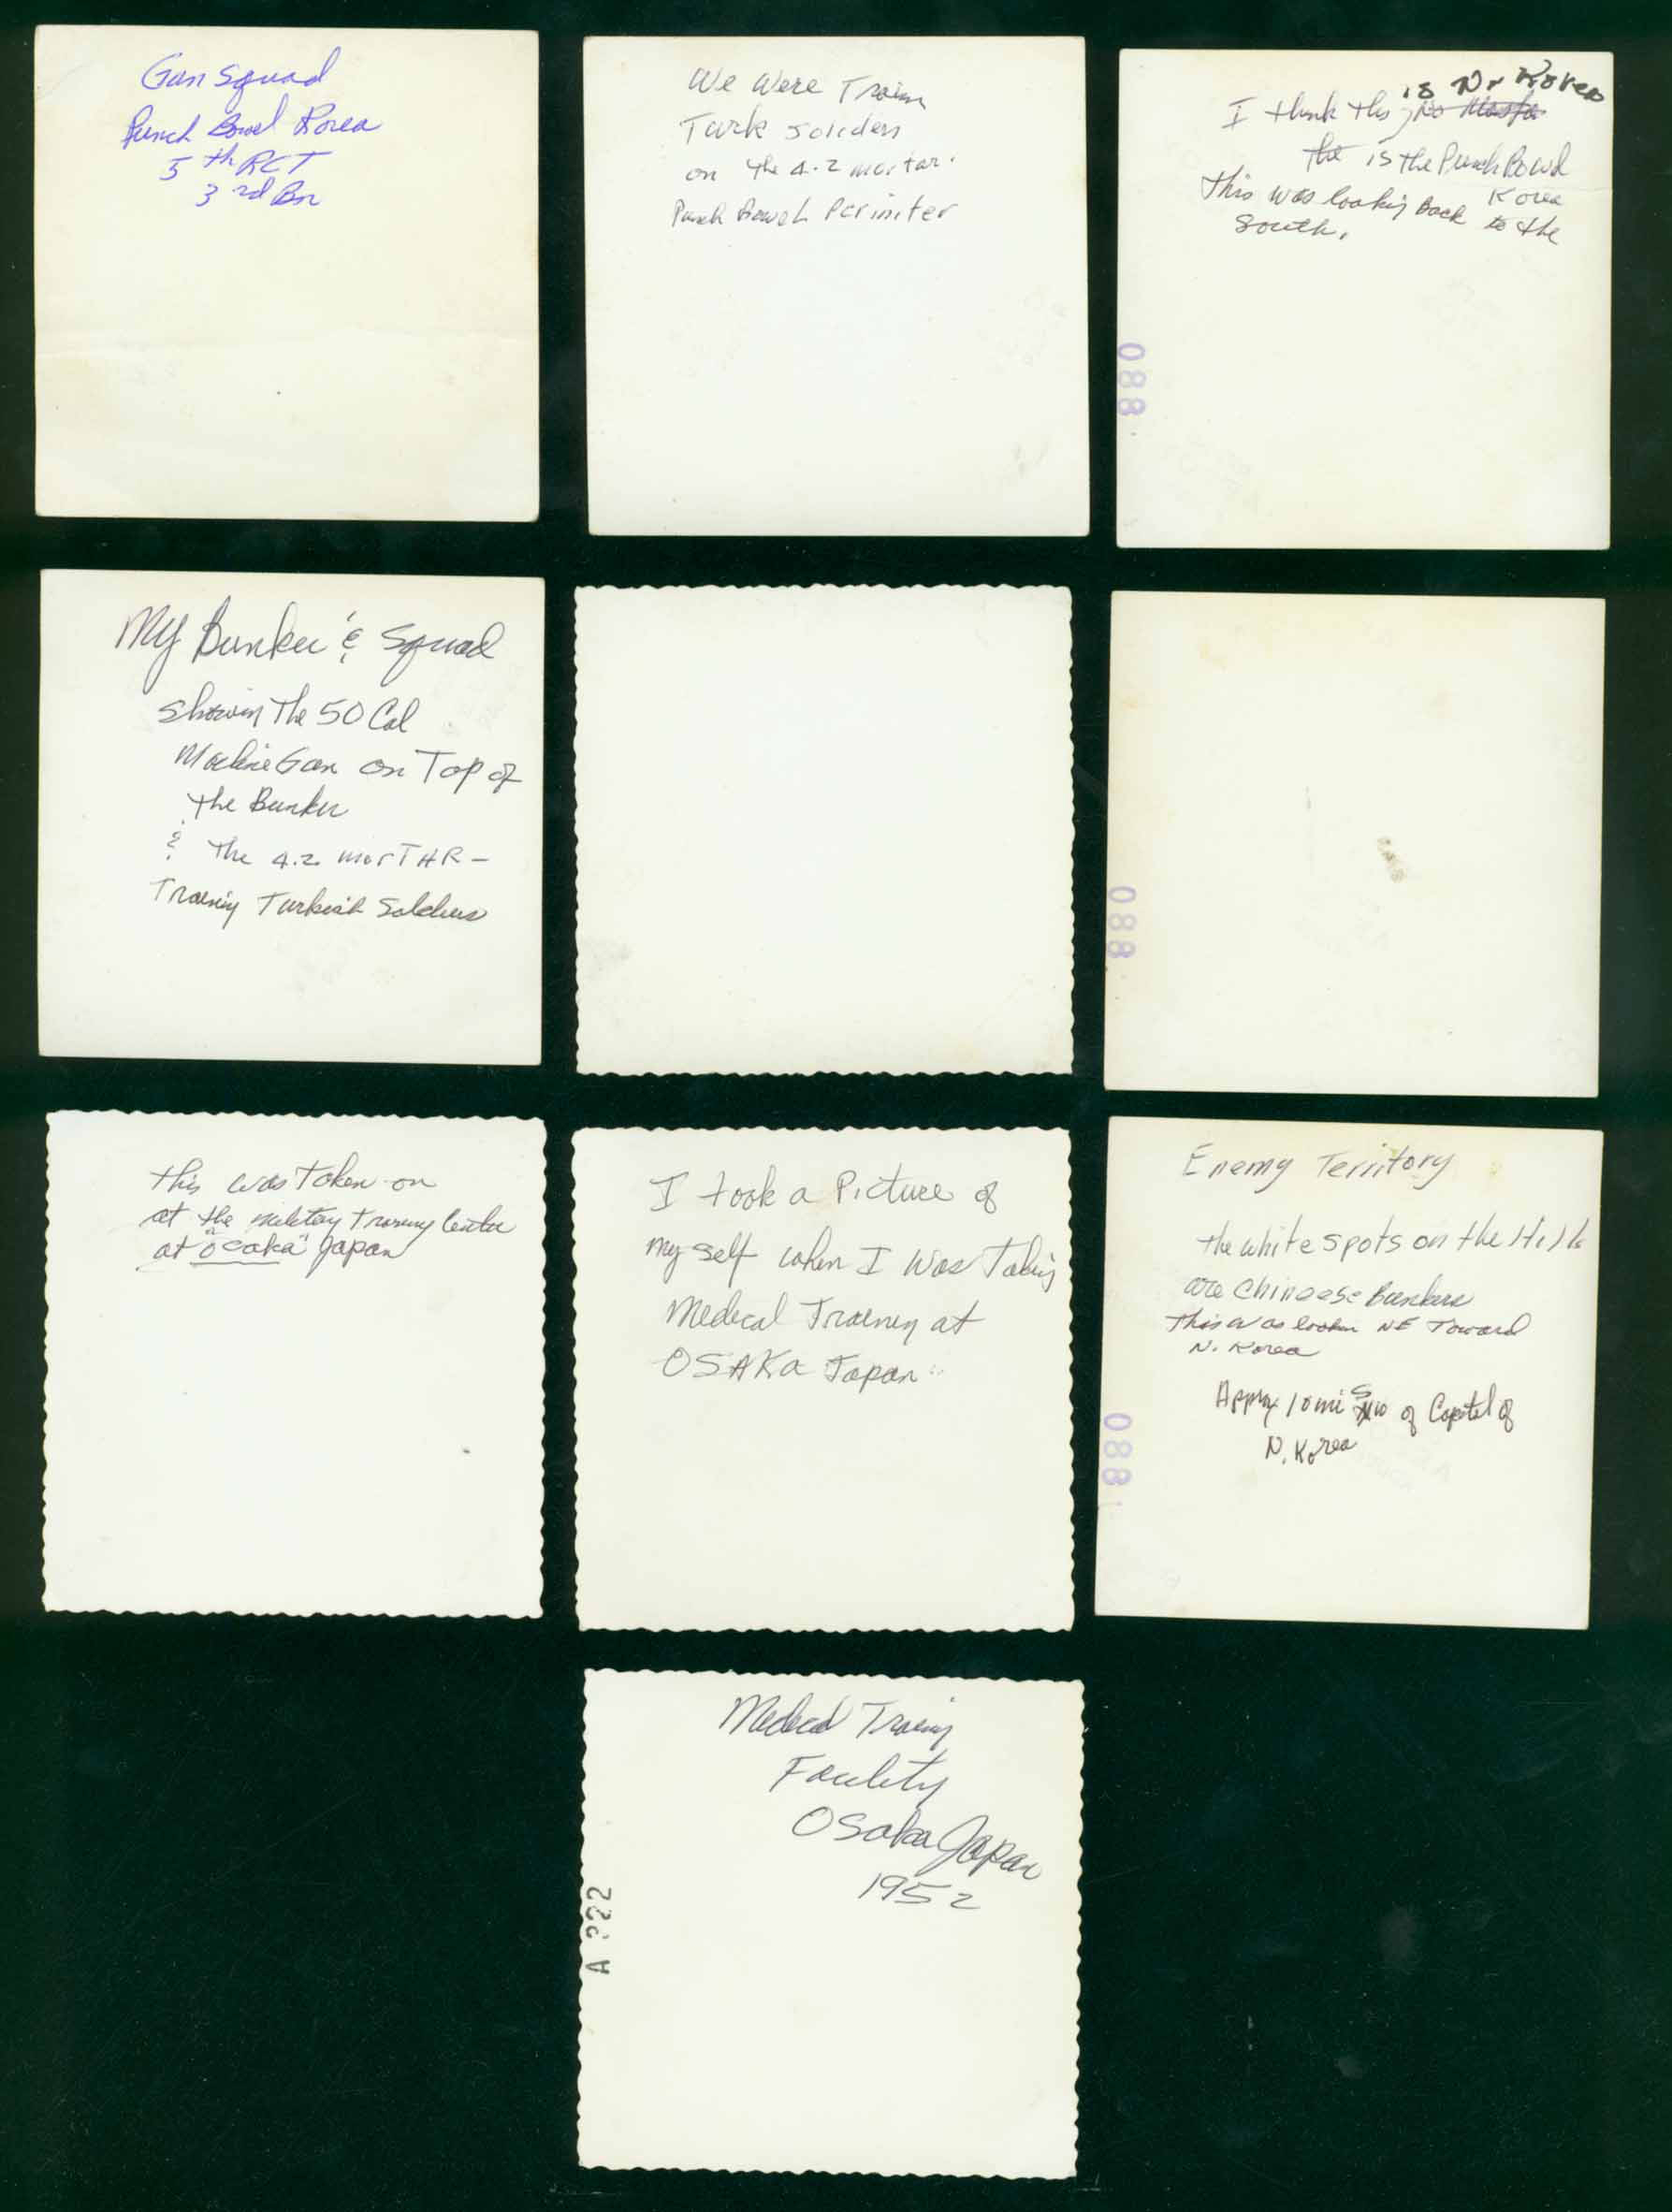 Gun Squad
Punch Bowl Korea
5th RCT
3rd Bn
We Were Train
Turk soliders
on the 4.2 mortar.
Punch Bowl Periniter
is Nr Korea
I think this
the is the Punch Bowl
Korea
This was looking Back to the
South.
088
My Bunker & Squad
Showin The 50 Cal
Machine Gun on Top of
the Bunker
& The 4.2 morTAR -
Training Turkish Soldiers
088
this was Taken on
at the military Training Center
at "Osaka" Japan
I took a Picture of
My self when I was Taking
Medical Training at
OSAKa Japan
Enemy Territory
the white spots on the Hills
are Chineese Bunkers
This was lookin NE Toward
N. Korea
Approx 10 mi of Capitol of
N. Korea
088
Medical Training
Facility
Osaka Japan
1952
A 222